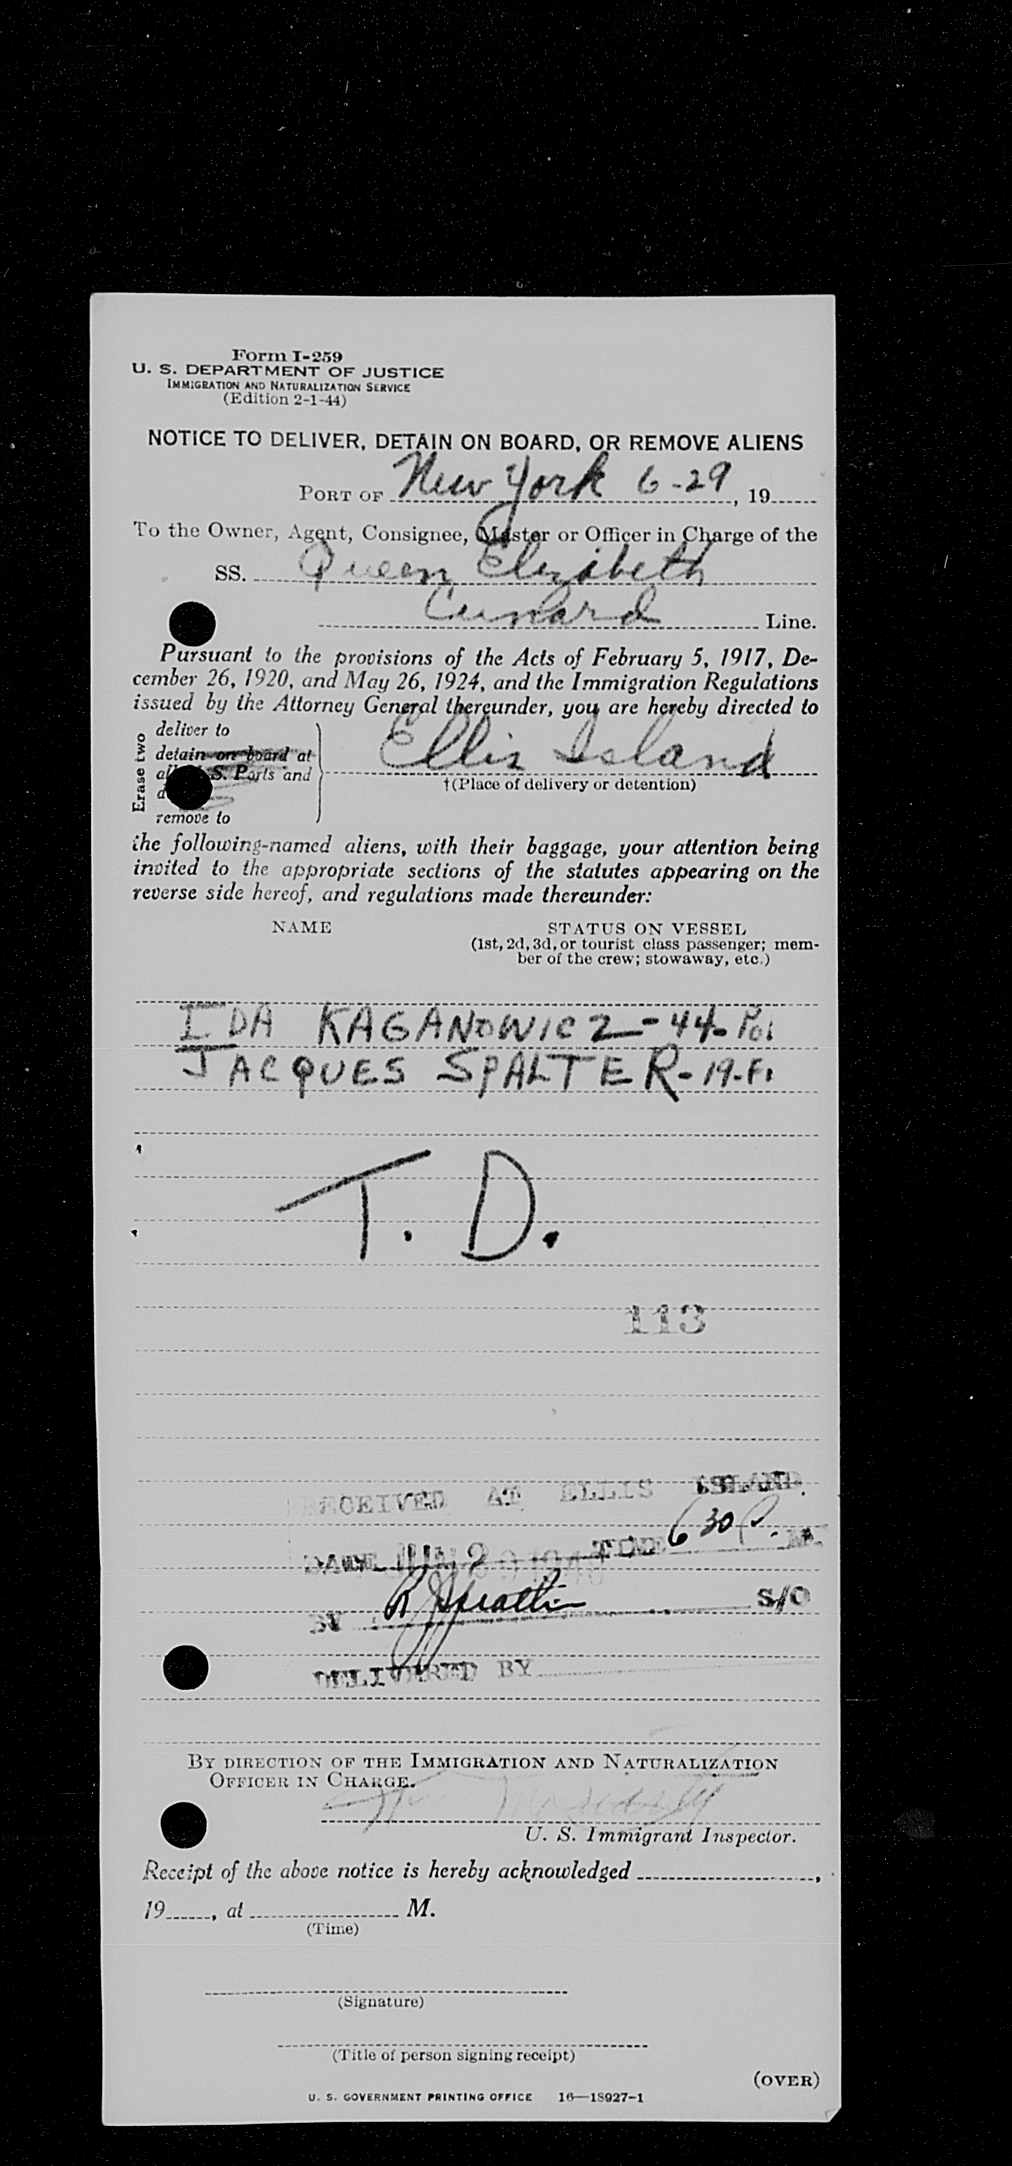 Form I-259
U. S. DEPARTMENT OF JUSTICE
IMMIGRATION AND NATURALIZATION SERVICE
(Edition 2-1-44)
NOTICE TO DELIVER, DETAIN ON BOARD, OR REMOVE ALIENS
PORT OF New York 6-29, 19
To the Owner, Agent, Consignee, Master or Officer in Charge of the
SS. Queen Elizabeth
Cunard Line.
Pursuant to the provisions of the Acts of February 5, 1917, De-
cember 26, 1920, and May 26, 1924, and the Immigration Regulations
issued by the Attorney General thereunder, you are hereby directed to
Erase two
deliver to
detain on board at
S. Ports and
remove to
Ellis Island
†(Place of delivery or detention)
the following-named aliens, with their baggage, your attention being
invited to the appropriate sections of the statutes appearing on the
reverse side hereof, and regulations made thereunder:
NAME
STATUS ON VESSEL
(1st, 2d, 3d, or tourist class passenger; mem-
ber of the crew; stowaway, etc.)
IDA KAGANOWICZ-44-Pol
JACQUES SPALTER-19-Fr
T. D.
113
RECEIVED AT ELLIS ISLAND.
DATE TIME 6 30 P. M.
BY S/O
DELIVERED BY
BY DIRECTION OF THE IMMIGRATION AND NATURALIZATION
OFFICER IN CHARGE.
U. S. Immigrant Inspector.
Receipt of the above notice is hereby acknowledged ,
19, at M.
(Time)
(Signature)
(Title of person signing receipt)
(OVER)
U. S. GOVERNMENT PRINTING OFFICE 16—18927-1